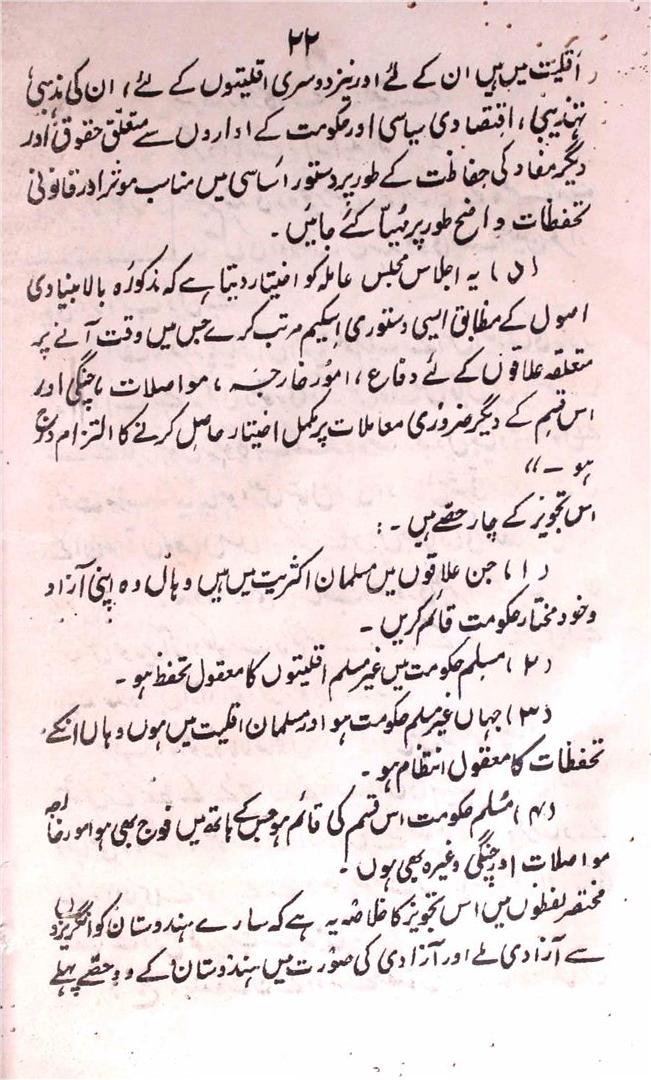 ۲۲
اقلیت میں ہیں ان کے لئے اور نیز دوسری اقلیتوں کے لئے، ان کی مذہبی
تہذیبی، اقتصادی سیاسی اور حکومت کے اداروں سے متعلق حقوق اور
دیگر مفاد کی حفاظت کے طور پر دستور اساسی میں مناسب موثر اور قانونی
تحفظات واضح طور پر مہیّا کئے جائیں۔
(۵) یہ اجلاس مجلس عاملہ کو اختیار دیتا ہے کہ مذکورہ بالا بنیادی
اصول کے مطابق ایسی دستوری اسکیم مرتب کرے جس میں وقت آنے پر
متعلقہ علاقوں کے لئے دفاع، امور خارجہ، مواصلات، چنگی اور
اس قسم کے دیگر ضروری معاملات پر مکمل اختیار حاصل کرنے کا التزام درج
ہو۔"
اس تجویز کے چار حصّے ہیں۔:
(۱) جن علاقوں میں مسلمان اکثریت میں ہیں وہاں وہ اپنی آزاد
وخود مختار حکومت قائم کریں۔
(۲) مسلم حکومت میں غیر مسلم اقلیتوں کا معقول تحفظ ہو۔
(۳) جہاں غیر مسلم حکومت ہو اور مسلمان اقلیت میں ہوں وہاں انکے
تحفظات کا معقول انتظام ہو۔
(۴) مُسلم حکومت اس قسم کی قائم ہو جس کے ہاتھ میں فوج بھی ہو امور خارجہ
مواصلات اور چنگی وغیرہ بھی ہوں۔
مختصر لفظوں میں اس تجویز کا خلاصہ یہ ہے کہ سارے ہندوستان کو انگریزوں
سے آزادی ملے اور آزادی کی صورت میں ہندوستان کے دو حصّے پہلے